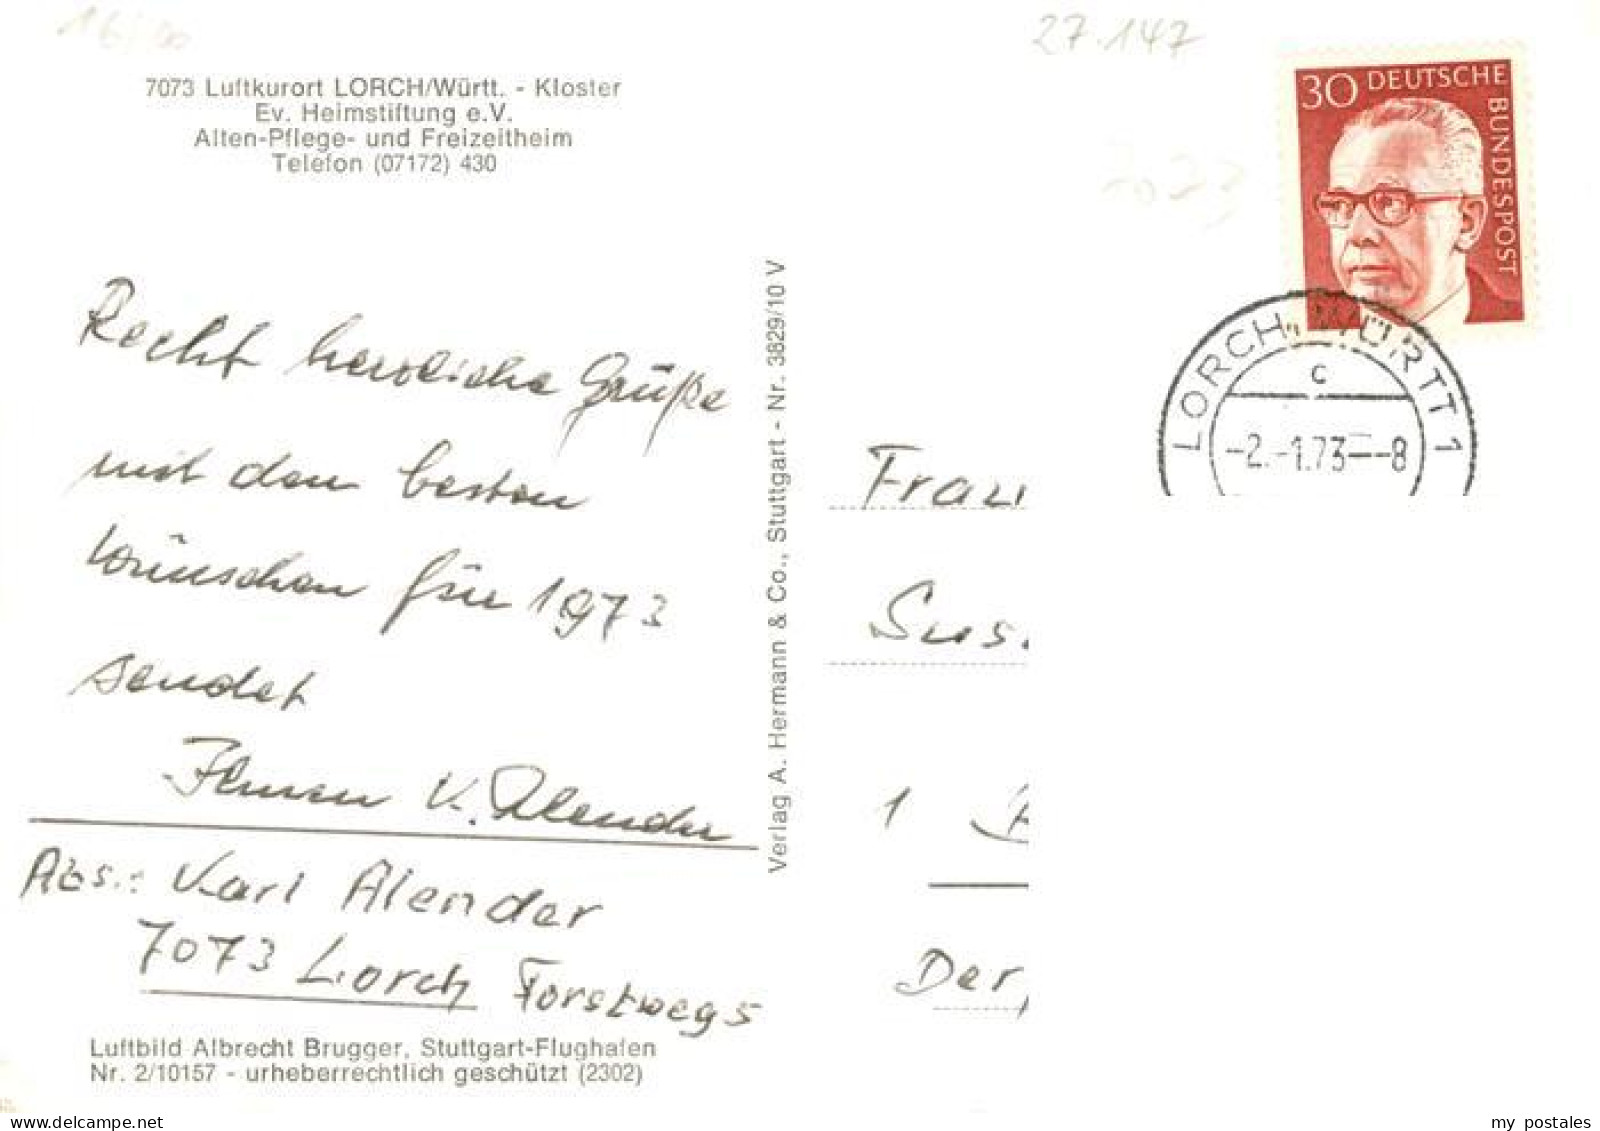 16/00
27.147
7073 Luftkurort LORCH/Württ. - Kloster
Ev. Heimstiftung e.V.
Alten-Pflege- und Freizeitheim
Telefon (07172) 430
30 DEUTSCHE
BUNDESPOST
7073
LORCH, WÜRTT 1
c
-2.-1.73--8
Recht herzliche Grüße
mit den besten
Wünschen für 1973
sendet
K. Alender
Abs.: Karl Alender
7073 Lorch Forstweg 5
Verlag A. Hermann & Co., Stuttgart - Nr. 3829/10 V
Frau
Sus.
1
Der
Luftbild Albrecht Brugger, Stuttgart-Flughafen
Nr. 2/10157 - urheberrechtlich geschützt (2302)
my postales